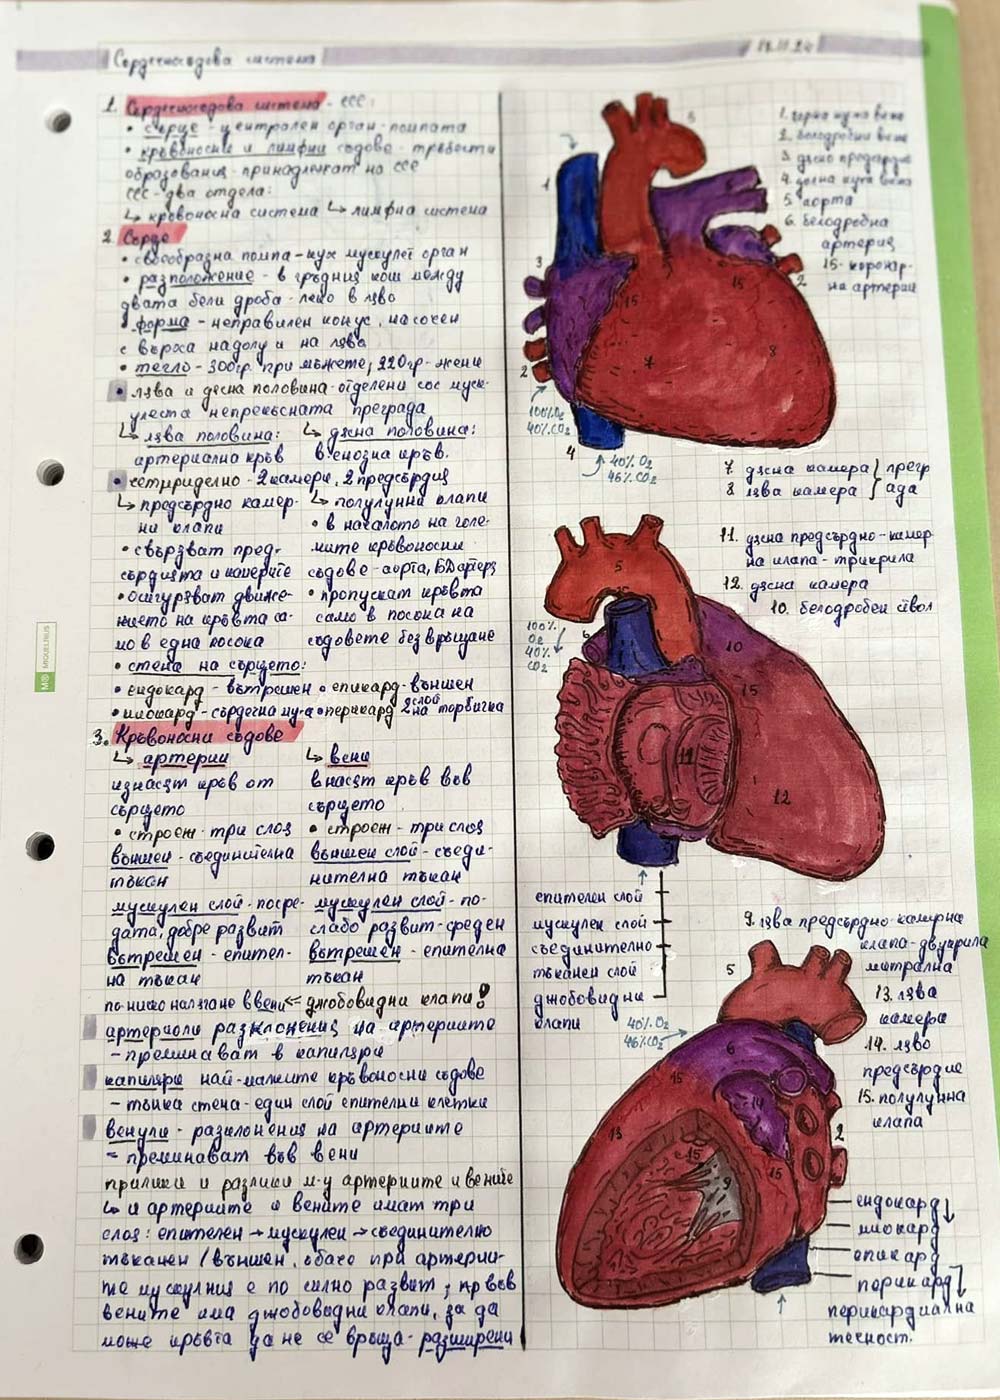 Сърдечносъдова система
18.11.24
1. Сърдечносъдова система - ССС:
• сърце - централен орган - помпата
• кръвоносни и лимфни съдове - тръбести
образования - принадлежат на ССС
ССС - два отдела:
↳ кръвоносна система ↳ лимфна система
2. Сърце
• своеобразна помпа - кух мускулест орган
• разположение - в гръдния кош между
двата бели дроба - леко в ляво
• форма - неправилен конус, насочен
с върха надолу и на ляво
• тегло - 300гр. при мъжете, 220гр - жени
• лява и дясна половина - отделени със муск-
улеста непрекъсната преграда
↳ лява половина: ↳ дясна половина:
артериална кръв венозна кръв.
• четириделно - 2 камери, 2 предсърдия
↳ предсърдно камер- ↳ полулунни клапи
ни клапи • в началото на голе-
• свързват пред- мите кръвоносни
сърдията и камерите съдове - аорта, БДартерия
• осигуряват движе- • пропускат кръвта
нието на кръвта са- само в посока на
мо в една посока съдовете без връщане
• стена на сърцето:
• ендокард - вътрешен • епикард - външен
• миокард - сърдечна му-а • перикард 2 слой на торбичка
3. Кръвоносни съдове
↳ артерии ↳ вени
изнасят кръв от внасят кръв във
сърцето сърцето
• строеж - три слоя • строеж - три слоя
външен - съединителна външен слой - съеди-
тъкан нителна тъкан
мускулен слой - посре- мускулен слой - по-
дата, добре развит слабо развит - среден
вътрешен - епител- вътрешен - епителна
на тъкан тъкан
по-ниско налягане в вени ⇐ джобовидни клапи!
артериоли разклонения на артериите
- преминават в капиляри
капиляри най-малките кръвоносни съдове
- тънка стена - един слой епителни клетки
венули - разклонения на артериите
- преминават във вени
прилики и разлики м-у артериите и вените
↳ и артериите и вените имат три
слоя: епителен → мускулен → съединително
тъканен / външен, обаче при артерии-
те мускулния е по силно развит, пр във
вените има джобовидни клапи, за да
може кръвта да не се връща - разширени
1. горна куха вена
2. белодробни вени
3. дясно предсърдие
4. долна куха вена
5. аорта
6. белодробна
артерия
15 - коронар-
на артерии
5
1
3
15
15
2
7
8
2
100% O₂
40% CO₂
4
40% O₂
46% CO₂
7 дясна камера } прегр
8 лява камера } ада
11. дясна предсърдно-камер
на клапа - трикрила
12. дясна камера
10. белодробен ствол
5
100%
O₂
40%
CO₂
6
10
15
11
12
епителен слой
мускулен слой
съединително
тъканен слой
джобовидни
клапи
9. лява предсърдно-камерна
клапа - двукрила
митрална
13. лява
камера
14. ляво
предсърдие
15. полулунна
клапа
5
40% O₂
46% CO₂
6
15
14
13
2
15
9
15
ендокард
миокард
епикард
перикард
перикардиална
течност.
MIQUELRIUS